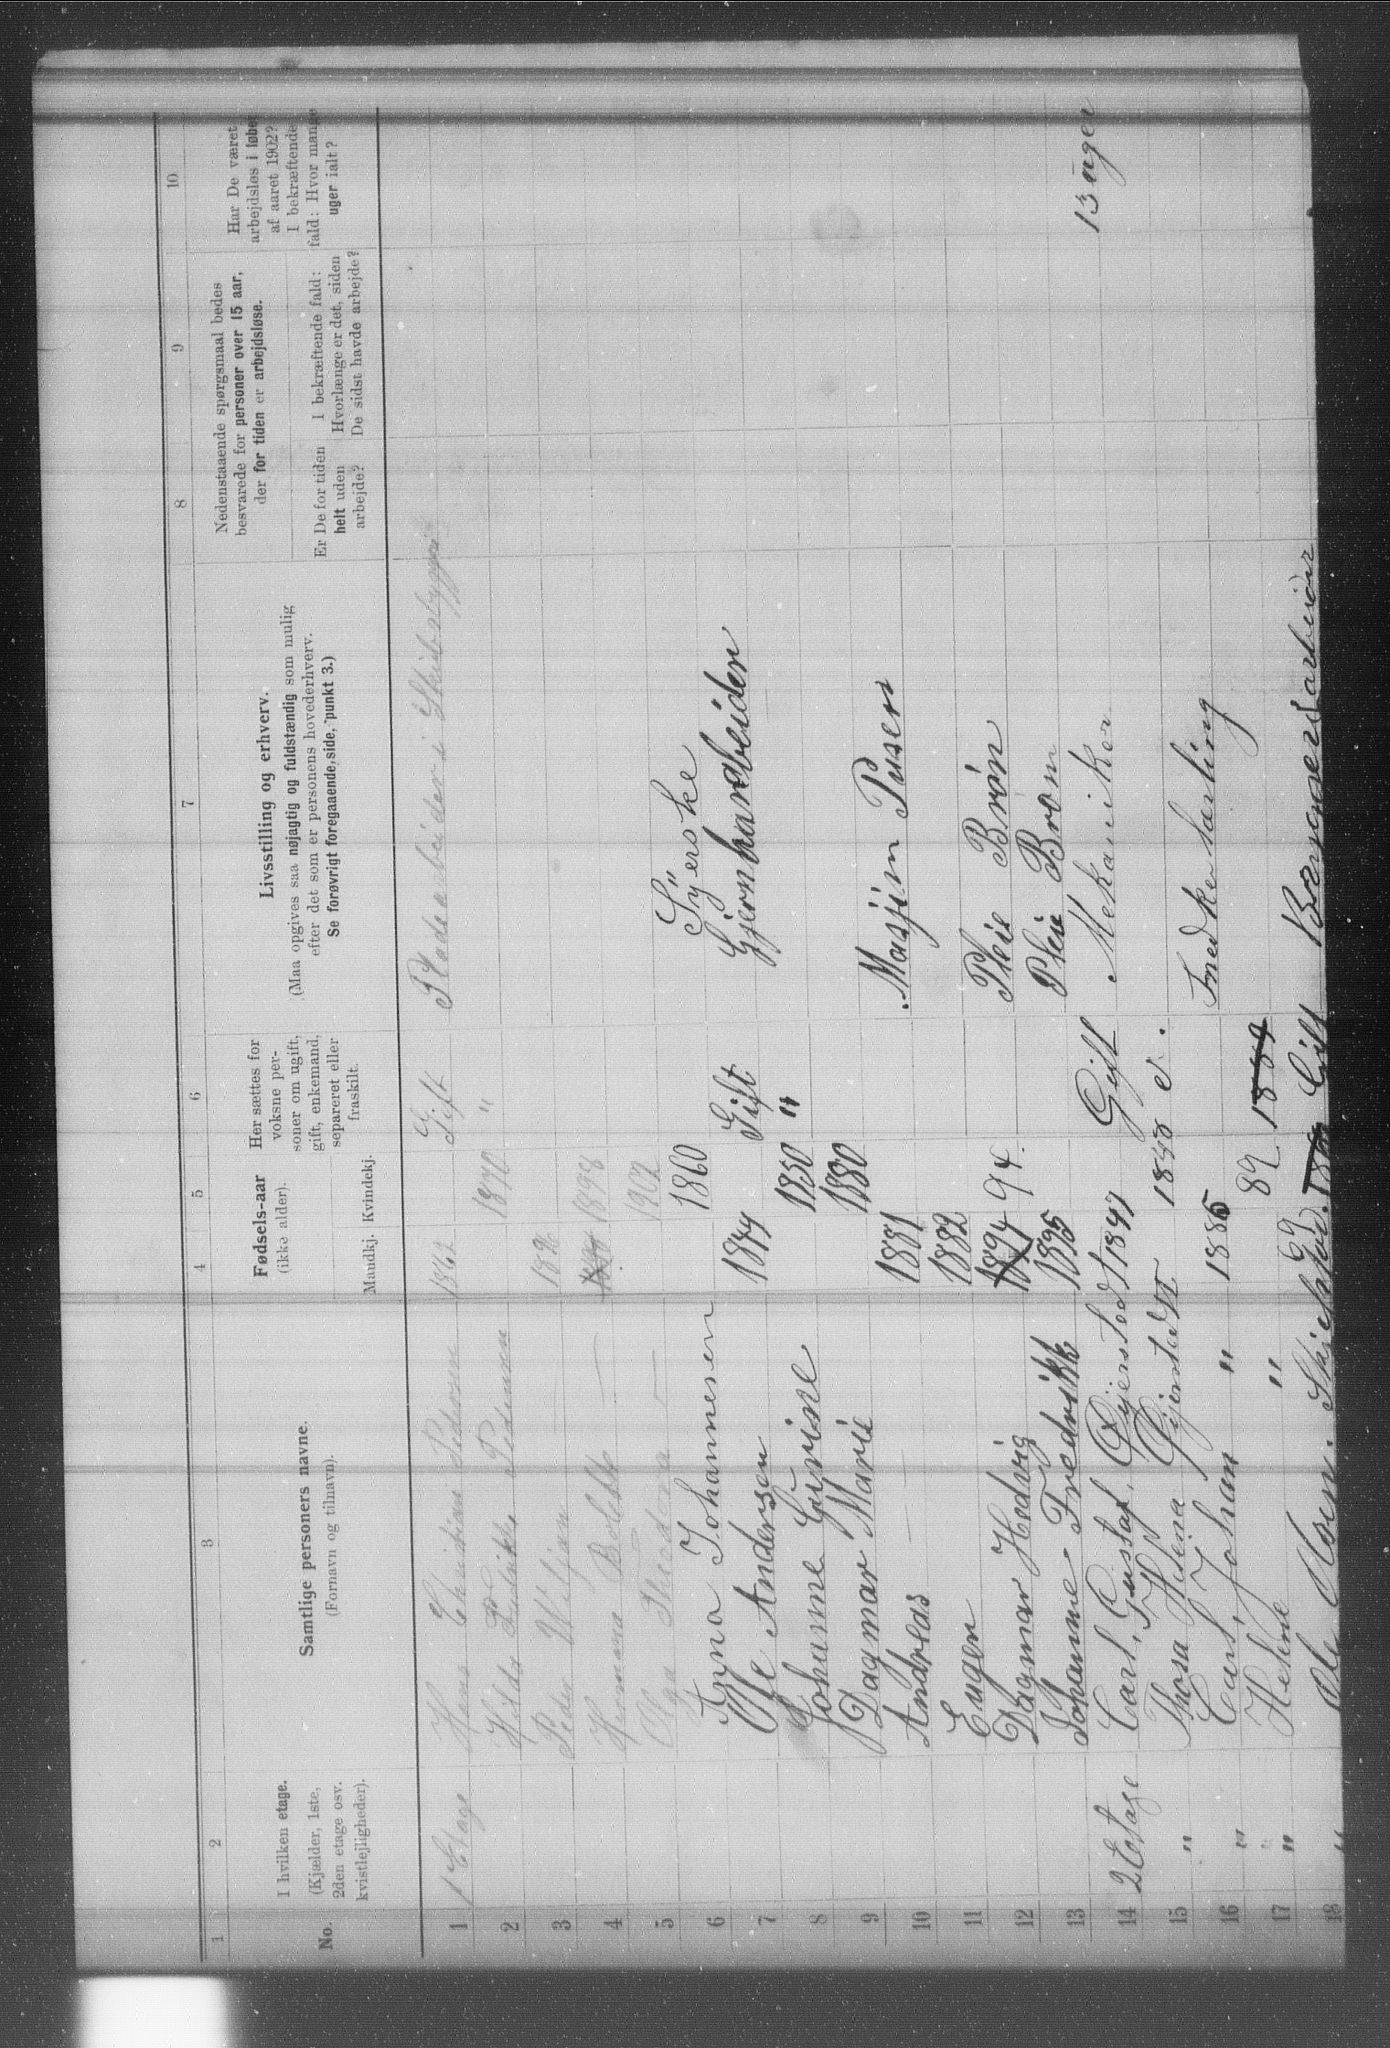 1 2 3 4 5 6 7 8 9 10
No.
I hvilken etage.
(Kjælder, 1ste,
2den etage osv.
kvistlejligheder).
Samtlige personers navne.
(Fornavn og tilnavn).
Fødsels-aar
(ikke alder).
Mandkj. Kvindekj.
Her sættes for
voksne per-
soner om ugift,
gift, enkemand,
separeret eller
fraskilt.
Livsstilling og erhverv.
(Maa opgives saa nøjagtig og fuldstændig som mulig
efter det som er personens hovederhverv.
Se forøvrigt foregaaende side, punkt 3.)
Nedenstaaende spørgsmaal bedes
besvarede for personer over 15 aar,
der for tiden er arbejdsløse.
Er De for tiden
helt uden
arbejde?
I bekræftende fald:
Hvorlænge er det, siden
De sidst havde arbejde?
Har De været
arbejdsløs i løbe
af aaret 1902?
I bekræftende
fald: Hvor mange
uger ialt?
1 1 Etage Hans Christian Pedersen 1862 Gift Pladsarbeider i Skibsbyggeri
2 Hilda Fredrikke Pedersen 1870 "
3 Peder Wiljam 1896
4 Hermana Bolette — 1898
5 Olga Theodora — 1902
6 Anna Johannesen 1860 Syerske
7 Ole Andersen 1844 Gift Gjernharbeider
8 Johanne Gurine 1850 "
9 Dagmar Marie 1880
10 Andreas — 1881 Masjin Puser
11 Eugen 1882
12 Dagmar Hedvig 1894 94. Pleie Brøn
13 Johanne Fredrikk 1895 Pleie Brøn
14 2 Etage Carl, Gustaf, Øijenstedt 1847 Gift Mekaniker 13 uger
15 " Thora Helena Øijenstedt 1848 e.
16 " Carl, Johan " 1886 Snedkerlærling
17 " Helene " 89 1884
18 " Ole Olsen. Gift Bryggeriarbeider